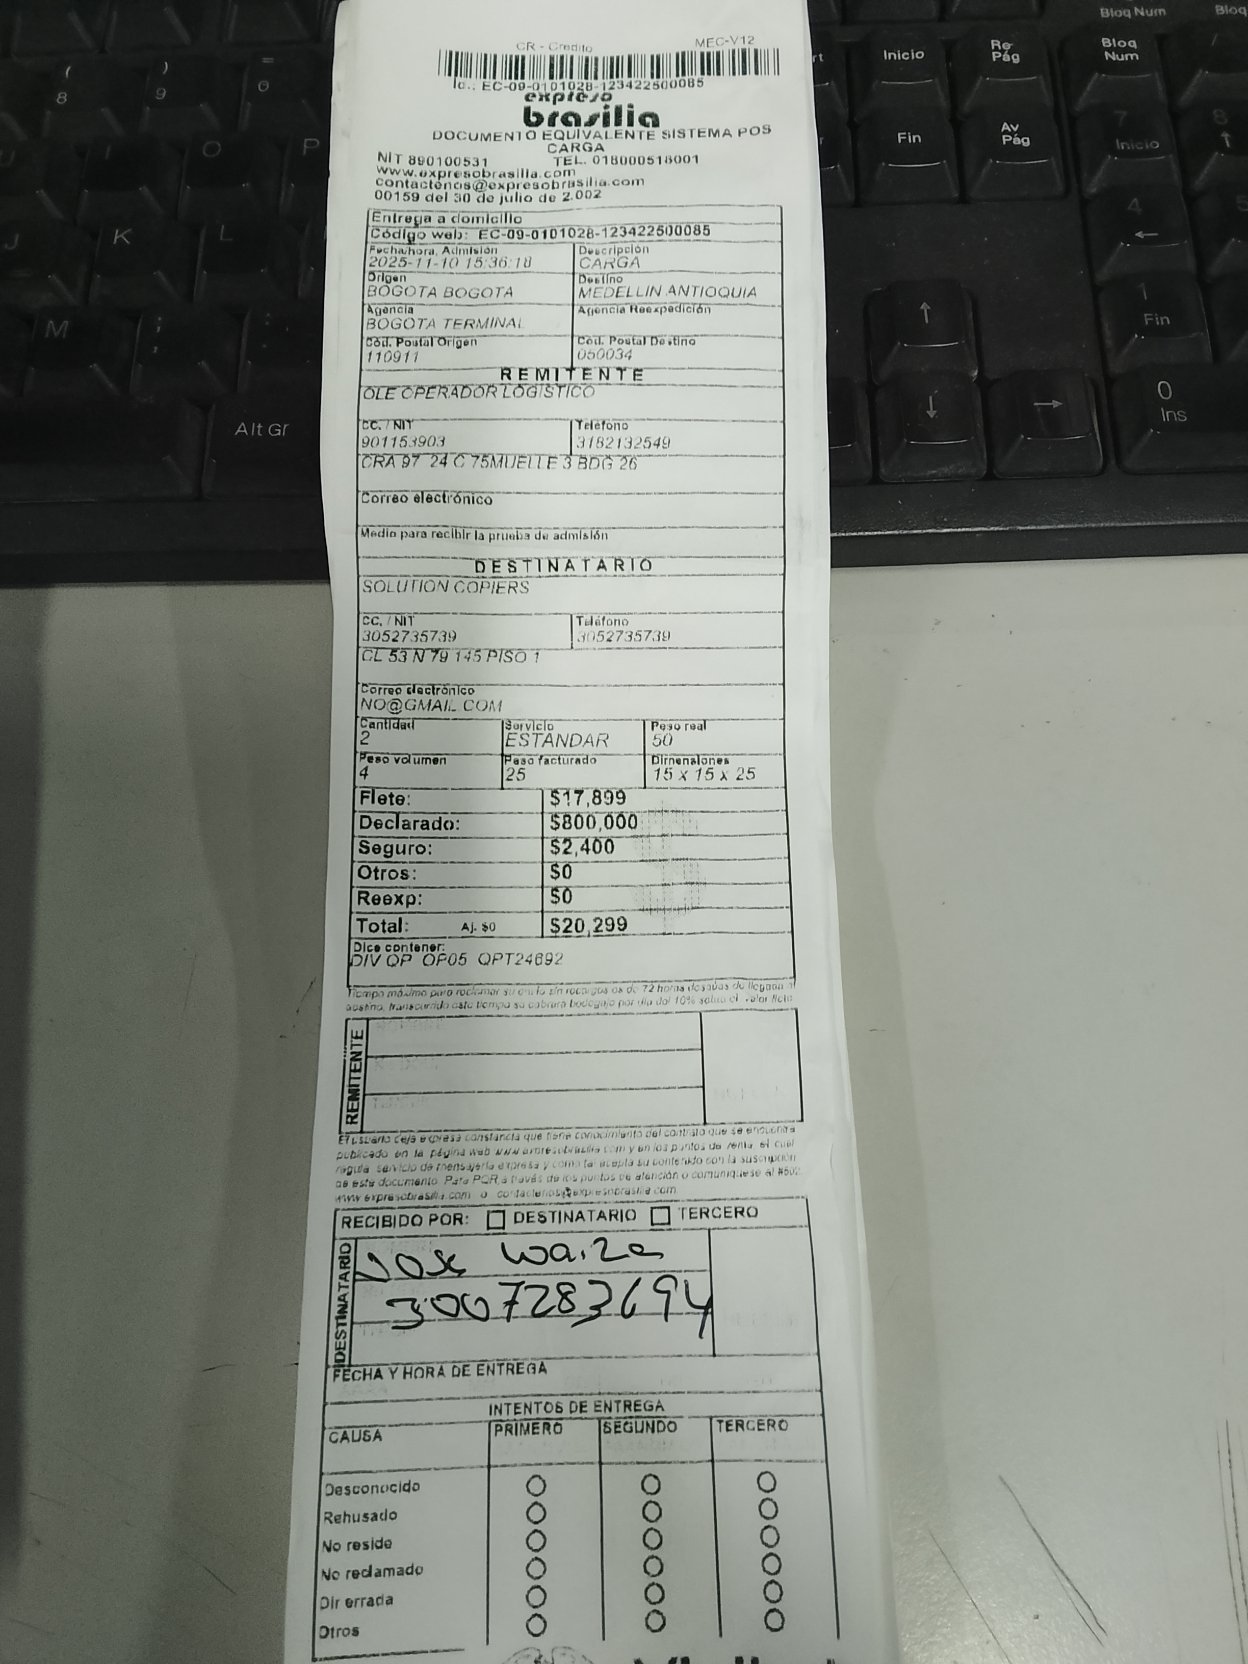 CR - Credito MEC-V12
Id.: EC-09-0101028-123422500085
expreso
brasilia
DOCUMENTO EQUIVALENTE SISTEMA POS
CARGA
NIT 890100531 TEL. 018000518001
www.expresobrasilia.com
contactenos@expresobrasilia.com
00159 del 30 de julio de 2.002
Entrega a domicilio
Código web: EC-09-0101028-123422500085
Fecha/hora, Admisión Descripción
2025-11-10 15:36:18 CARGA
Origen Destino
BOGOTA BOGOTA MEDELLIN ANTIOQUIA
Agencia Agencia Reexpedición
BOGOTA TERMINAL
Cod. Postal Origen Cod. Postal Destino
110911 050034
REMITENTE
OLE OPERADOR LOGISTICO
CC. / NIT Teléfono
901153903 3182132549
CRA 97 24 C 75MUELLE 3 BDG 26
Correo electrónico
Medio para recibir la prueba de admisión
DESTINATARIO
SOLUTION COPIERS
CC. / NIT Teléfono
3052735739 3052735739
CL 53 N 79 145 PISO 1
Correo electrónico
NO@GMAIL COM
Cantidad Servicio Peso real
2 ESTANDAR 50
Peso volumen Peso facturado Dimensiones
4 25 15 x 15 x 25
Flete: $17,899
Declarado: $800,000
Seguro: $2,400
Otros: $0
Reexp: $0
Total: Aj. $0 $20,299
Dice contener:
DIV QP OP05 QPT24692
Tiempo máximo para reclamar su envío sin recargos es de 72 horas después de llegada a
destino, transcurrido este tiempo se cobrará bodegaje por día del 10% sobre el valor flete
REMITENTE
El usuario deja expresa constancia que tiene conocimiento del contrato que se encuentra
publicado en la página web www.expresobrasilia.com y en los puntos de venta, el cual
regula servicio de mensajería expresa y como tal acepta su contenido con la suscripción
de este documento. Para PQR a través de los puntos de atención o comuniquese al #502
www.expresobrasilia.com o contactenos@expresobrasilia.com
RECIBIDO POR: DESTINATARIO TERCERO
DESTINATARIO
Jose
3007283694
FECHA Y HORA DE ENTREGA
INTENTOS DE ENTREGA
CAUSA PRIMERO SEGUNDO TERCERO
Desconocido
Rehusado
No reside
No reclamado
Dir errada
Otros
Bloq Num
Inicio
Re Pág
Bloq Num
Fin
Av Pág
7 Inicio
8
9
4
1 Fin
0 Ins
Alt Gr
O
P
J
K
L
M